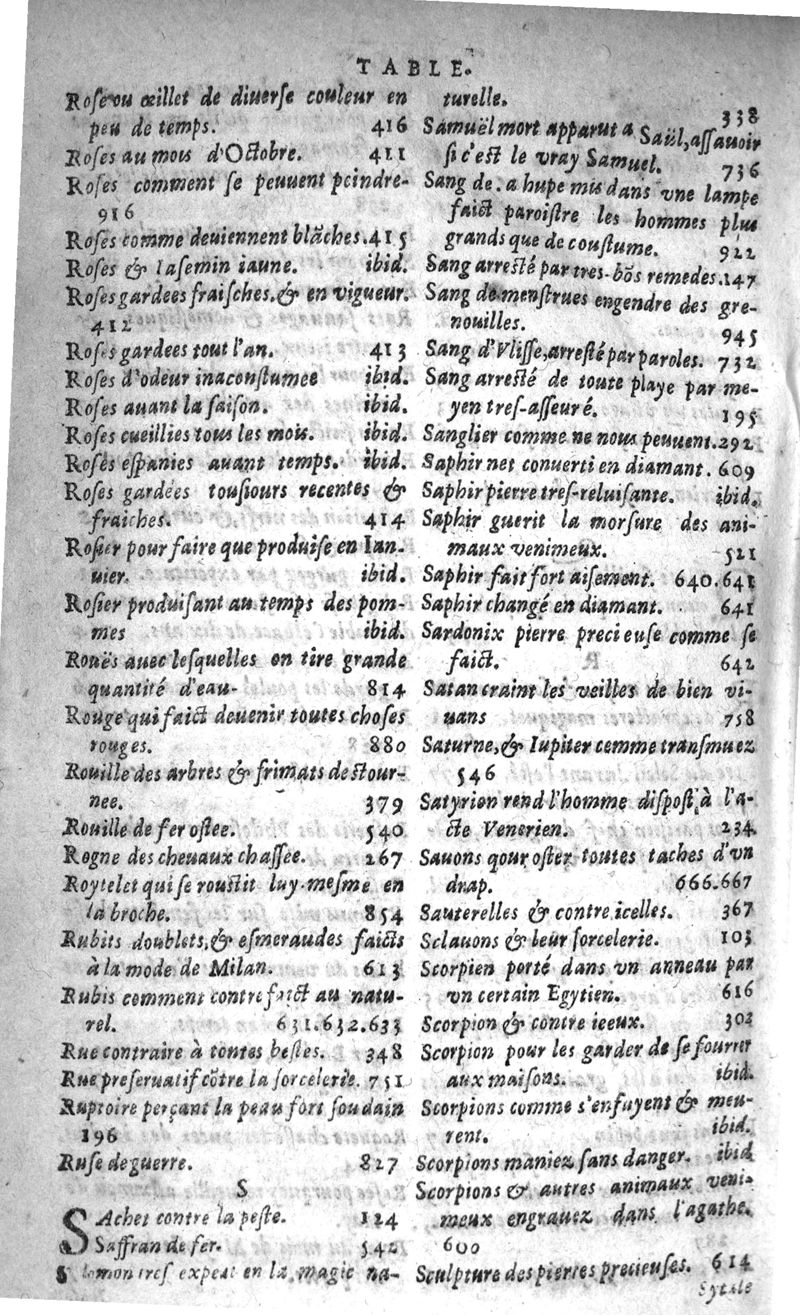 TABLE.
Rose ou œillet de diuerse couleur en
peu de temps. 416
Roses au mois d'Octobre. 411
Roses comment se peuuent peindre-
916
Roses comme deuiennent blãches. 415
Roses & Iasemin iaune. ibid.
Roses gardees fraisches. & en vigueur.
412
Roses gardees tout l'an. 413
Roses d'odeur inaconstumee ibid.
Roses auant la saison. ibid.
Roses cueillies tous les mois. ibid.
Roses espanies auant temps. ibid.
Roses gardées tousiours recentes &
fraiches. 414
Rosier pour faire que produise en Ian-
uier. ibid.
Rosier produisant au temps des pom-
mes ibid.
Rouës auec lesquelles on tire grande
quantité d'eau- 814
Rouge qui faict deuenir toutes choses
rouges. 880
Rouille des arbres & frimats destour-
nee. 379
Rouille de fer ostee. 540
Rogne des cheuaux chassée. 267
Roytelet qui se roustit luy-mesme en
la broche. 854
Rubits doublets, & esmeraudes faicts
à la mode de Milan. 613
Rubis comment contrefaict au natu-
rel. 631.632.633
Rue contraire à tontes bestes. 348
Rue preseruatif cõtre la sorcelerie. 751
Ruptoire perçant la peau fort soudain
196
Ruse de guerre. 827
S
SAchet contre la peste. 124
Saffran de fer. 542
S lomon tres expeat en la magic na-
turelle. 338
Samuël mort apparut a Saül, assauoir
si c'est le vray Samuel. 736
Sang de. a hupe mis dans vne lampe
faict paroistre les hommes plus
grands que de coustume. 922
Sang arresté par tres-bõs remedes. 147
Sang de menstrues engendre des gre-
nouilles. 945
Sang d'Vlisse, arresté par paroles. 732
Sang arresté de toute playe par me-
yen tres-asseuré. 195
Sanglier comme ne nous peuuent. 292
Saphir net conuerti en diamant. 609
Saphir pierre tres-reluisante. ibid.
Saphir guerit la morsure des ani-
maux venimeux. 521
Saphir fait fort aisement. 640.641
Saphir changé en diamant. 641
Sardonix pierre precieuse comme se
faict. 642
Satan craint les veilles de bien vi-
uans 758
Saturne, & Iupiter cemme transmuez
546
Satyrien rend l'homme dispost à l'a-
cte Venerien. 234
Sauons qour oster toutes taches d'vn
drap. 666.667
Sauterelles & contre icelles. 367
Sclauons & leur sorcelerie. 103
Scorpien porté dans vn anneau par
vn certain Egytien. 616
Scorpion & contre ieeux. 302
Scorpion pour les garder de se fourrer
aux maisons. ibid.
Scorpions comme s'enfuyent & meu-
rent. ibid.
Scorpions maniez sans danger. ibid
Scorpions & autres animaux veni-
meux engrauez dans l'agathe.
600
Sculpture des pierres precieuses. 614
Sytale